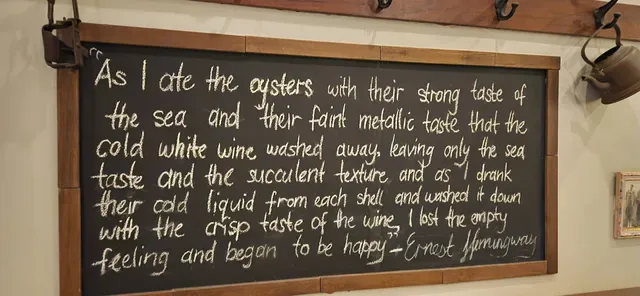 "As I ate the oysters with their strong taste of
the sea and their faint metallic taste that the
cold white wine washed away, leaving only the sea
taste and the succulent texture, and as I drank
their cold liquid from each shell and washed it down
with the crisp taste of the wine, I lost the empty
feeling and began to be happy" - Ernest Hemingway